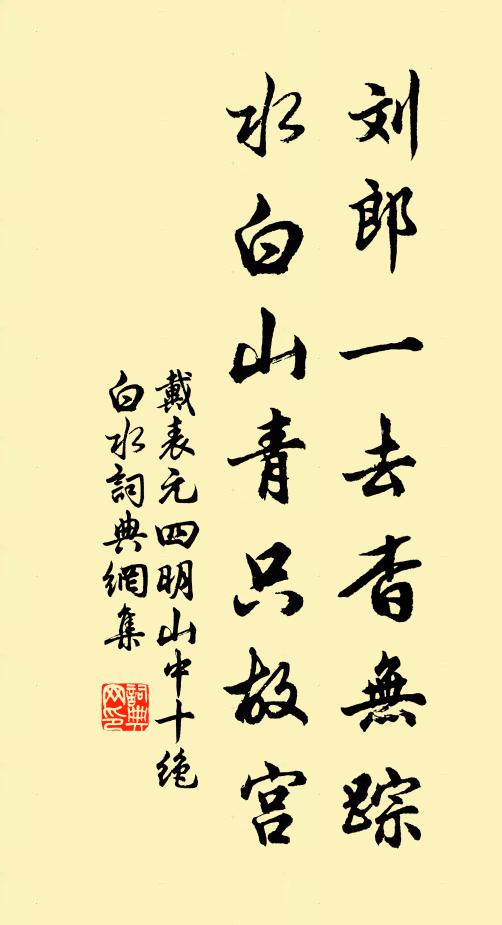 刘郎一去杳無踪
水白山青只故宫
戴表元四明山中十绝
白水詞典網集
詞典网印